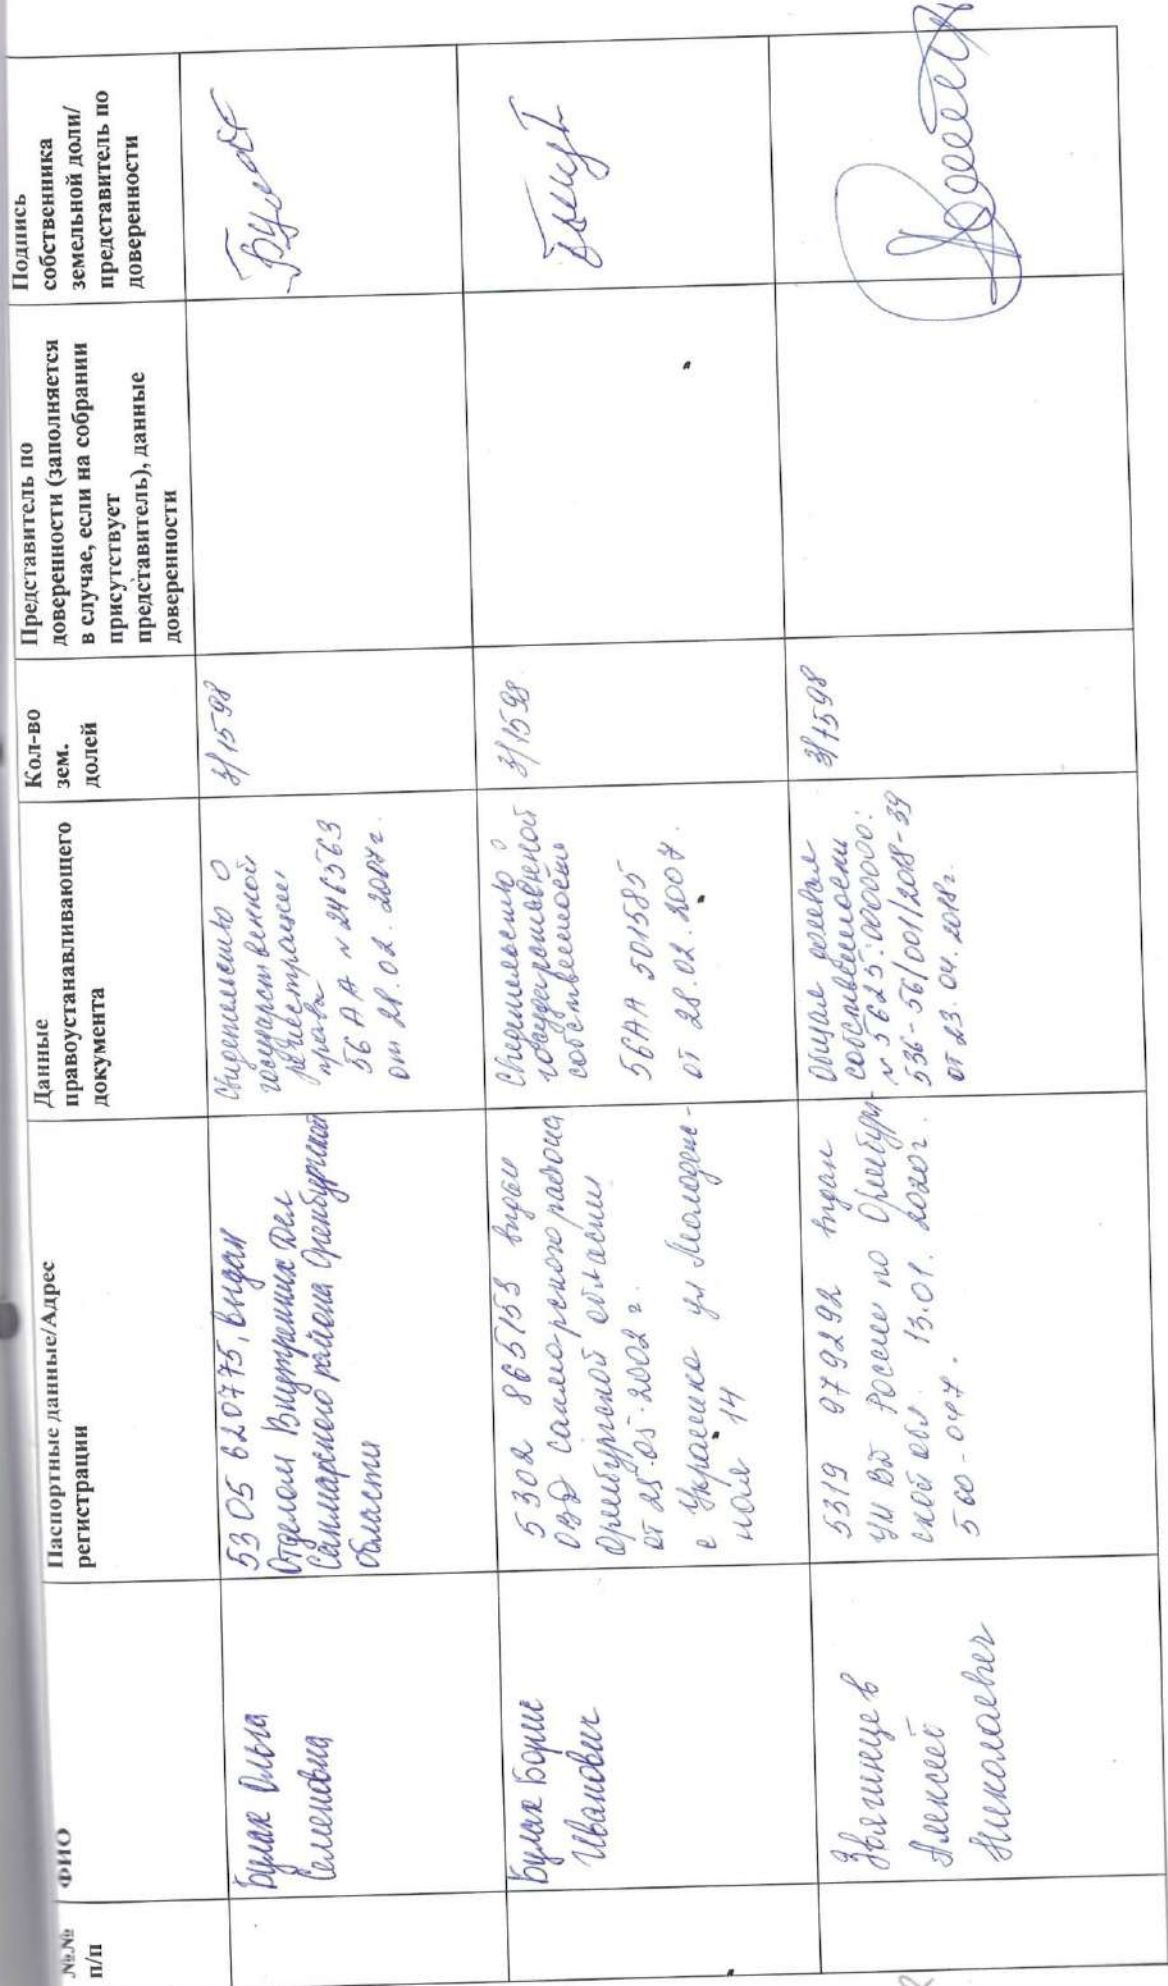 №№
п/п
ФИО
Паспортные данные/Адрес
регистрации
Данные
правоустанавливающего
документа
Кол-во
зем.
долей
Представитель по
доверенности (заполняется
в случае, если на собрании
присутствует
представитель), данные
доверенности
Подпись
собственника
земельной доли/
представитель по
доверенности
Булак Ольга
Семеновна
5305 620775, выдан
Отделом Внутренних Дел
Сакмарского района Оренбургской
области
Свидетельство о
государственной
регистрации
права
56 АА № 246563
от 28.02.2007г.
3/1598
Булак Борис
Иванович
5302 865153 выдан
ОВД Сакмарского района
Оренбургской области
от 25.05.2002 г.
с Украинка ул Молодеж-
ная 14
Свидетельство о
государственной
собственности
56АА 501585
от 28.02.2007.
3/1598
Звягинцев
Алексей
Николаевич
5319 979292 выдан
УМ ВД России по Оренбург-
ской обл. 13.01.2020г.
560-077.
Общая долевая
собственности
№ 5625:000000:
536-56/001/2018-39
от 23.04.2018г.
3/1598